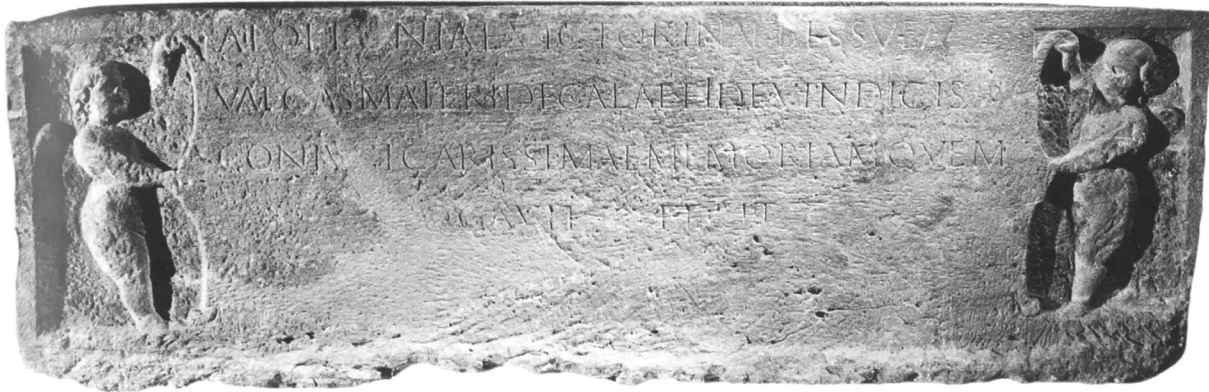 APOLLONIAE VICTORINAE BESSVLAE
VALGAS MATERNI VINDICIS
CONIVGI CARISSIMAE MEMORIAM QVEM
OGAVIT FECIT